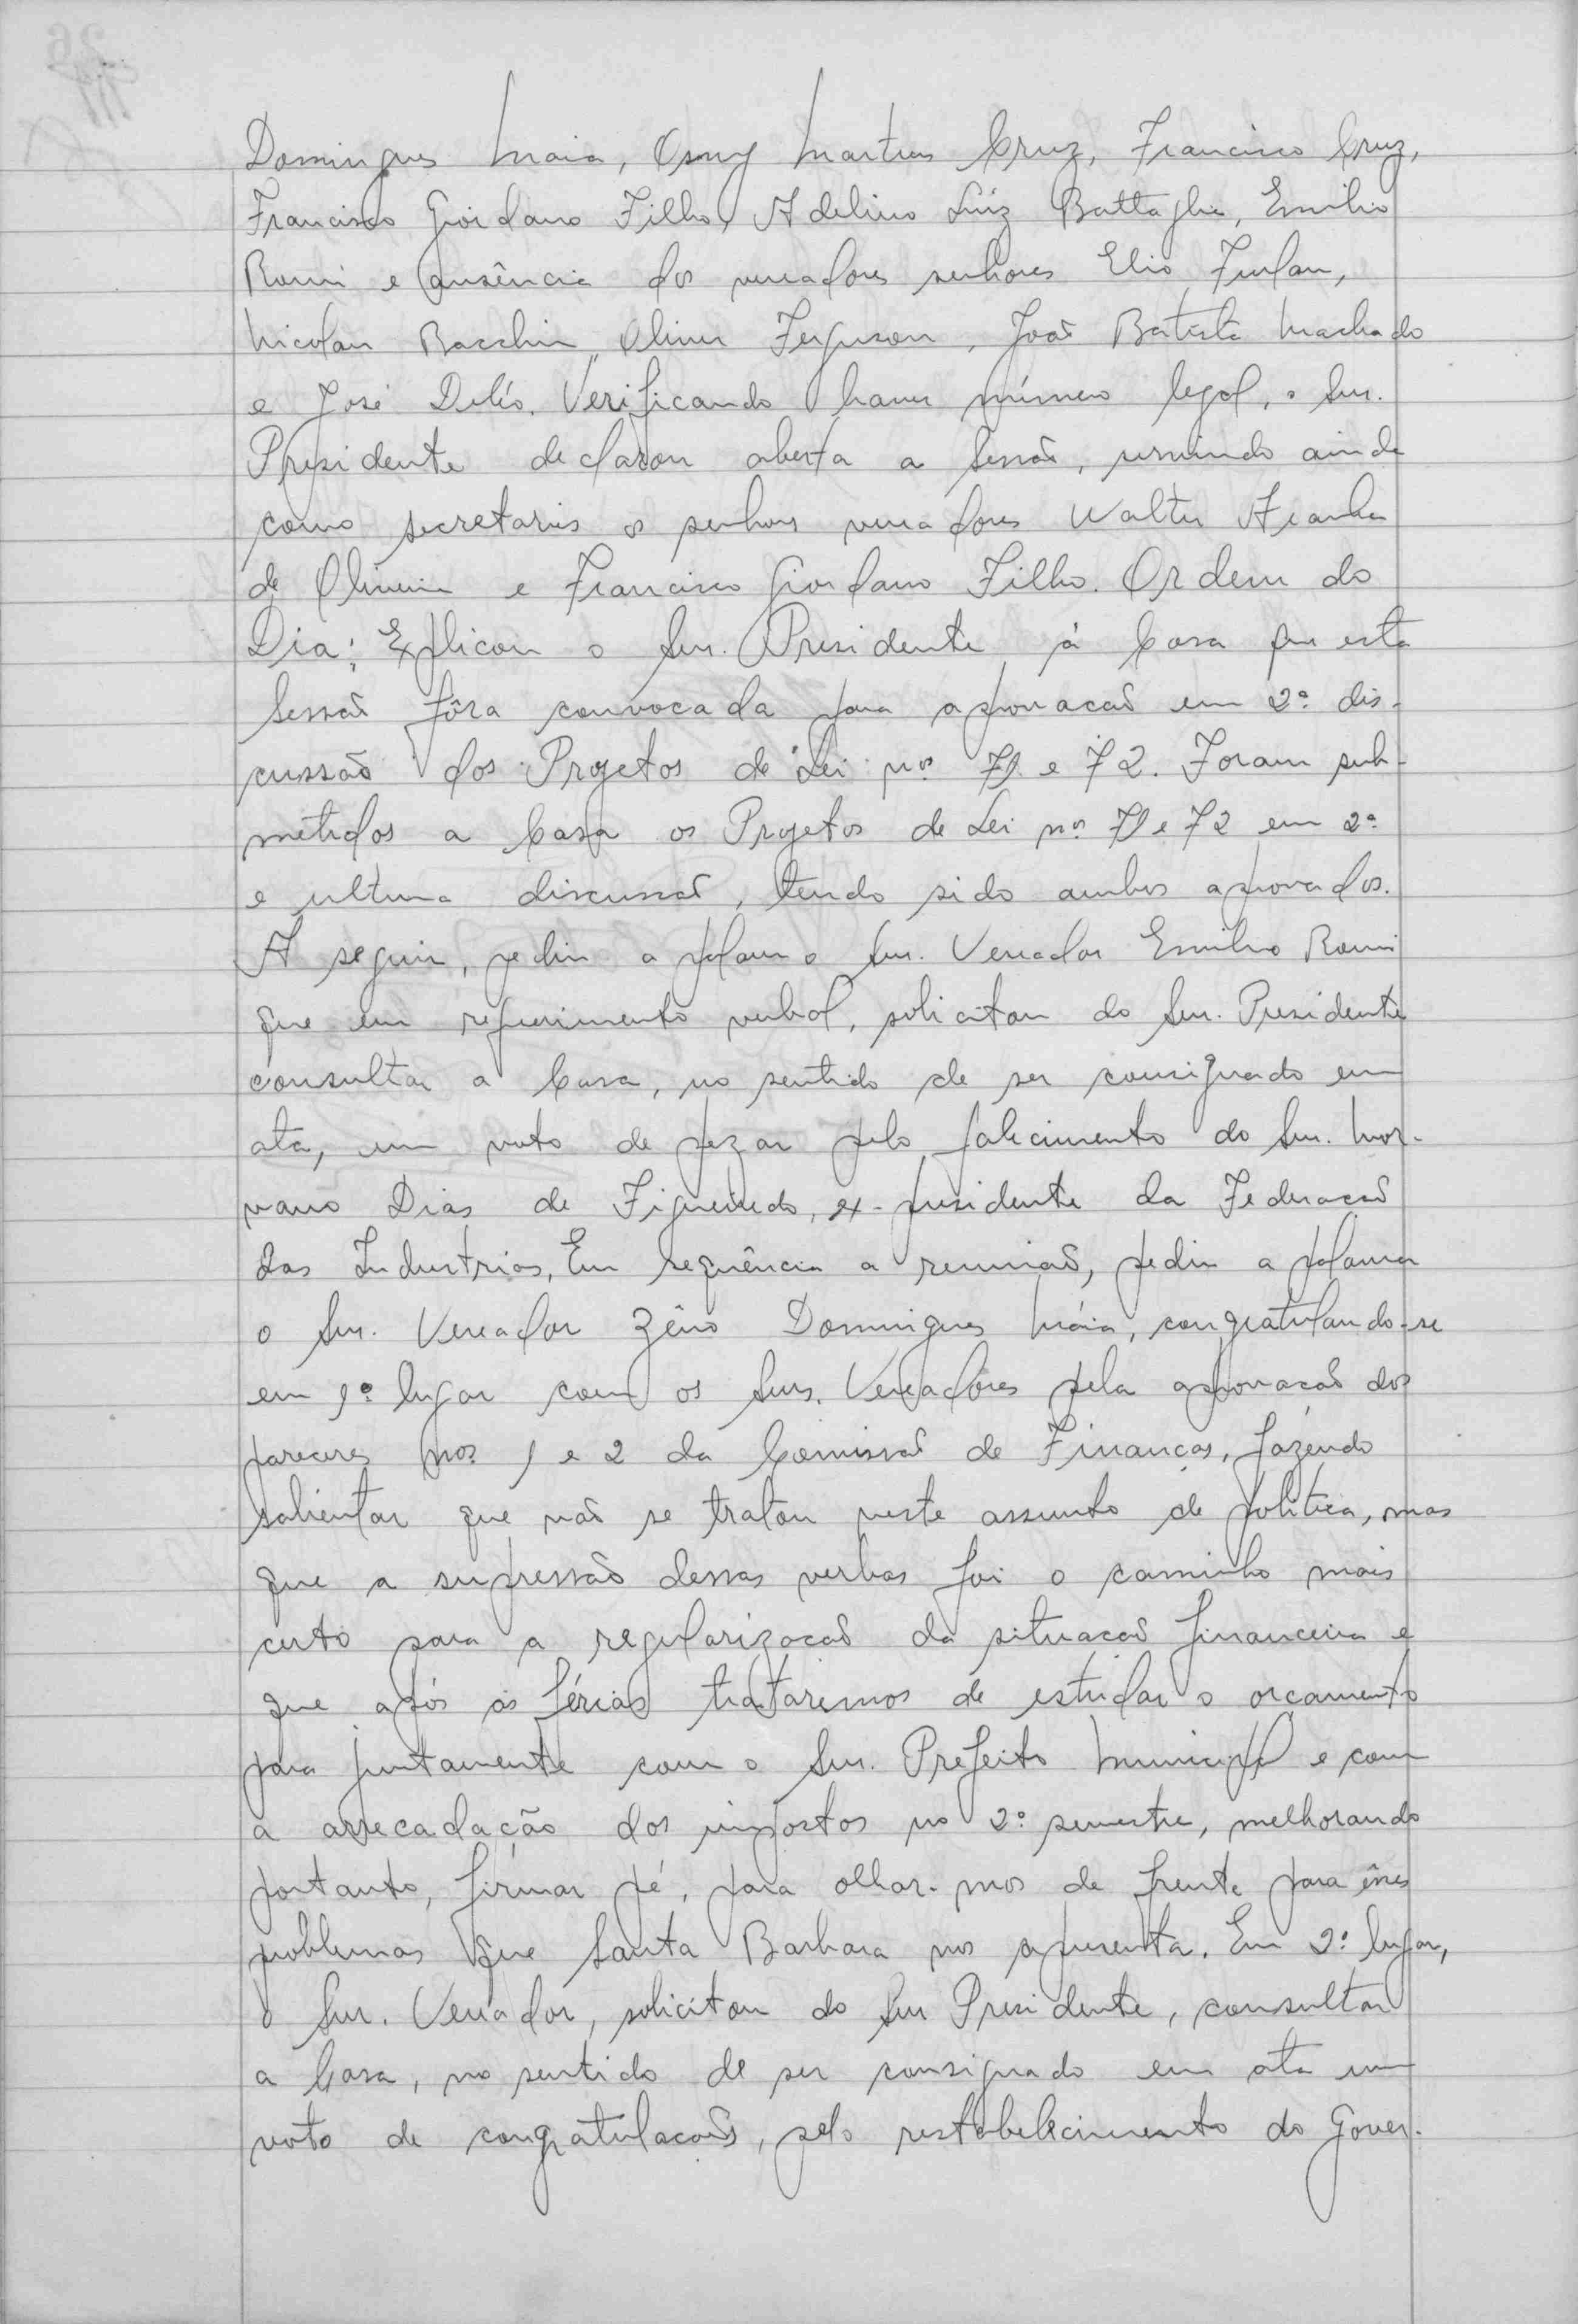 Domingues Maia, Osny Martins Cruz, Francisco Cruz,
Francisco Giordano Filho, Adelino Luiz Battaglia, Emilio
Romi e ausência dos vereadores senhores Elio Furlan,
Nicolau Bacchin, Oliver Ferguson, João Batista Machado
e José Delío. Verificando haver número legal, o Snr.
Presidente declarou aberta a Sessão, servindo ainda
como secretarios os senhores vereadores Walter Aranha
de Oliveira e Francisco Giordano Filho. Ordem do
Dia: Explicou o Snr. Presidente á Casa que esta
Sessão fôra convocada para aprovação em 2ª dis-
cussão dos Projetos de Lei nos 71 e 72. Foram sub-
metidos a Casa os Projetos de Lei nos 71 e 72 em 2ª
e ultima discussão, tendo sido ambos aprovados.
A seguir, pediu a palavra o Snr. Vereador Emilio Romi
que em requerimento verbal, solicitou do Snr. Presidente
consultar a Casa, no sentido de ser consignado em
ata, um voto de pezar pelo falecimento do Snr. Mor-
vano Dias de Figueiredo, ex-presidente da Federação
das Industrias. Em sequência a reunião, pediu a palavra
o Snr. Vereador Zêno Domingues Máia, congratulando-se
em 1º lugar com os Snrs. Vereadores pela aprovação dos
pareceres nos 1 e 2 da Comissão de Finanças, fazendo
salientar que não se tratou neste assunto de politica, mas
que a supressão dessas verbas foi o caminho mais
certo para a regularização da situação financeira e
que após as férias trataremos de estudar o orçamento
para juntamente com o Snr. Prefeito Municipal e com
a arrecadação dos impostos no 2º semestre, melhorando
portanto, firmar pé, para olhar-mos de frente para êsses
problemas que Santa Barbara nos apresenta. Em 2º lugar,
o Snr. Vereador, solicitou do Snr Presidente, consultar
a Casa, no sentido de ser consignado em ata um
voto de congratulações, pelo restabelecimento do Gover-